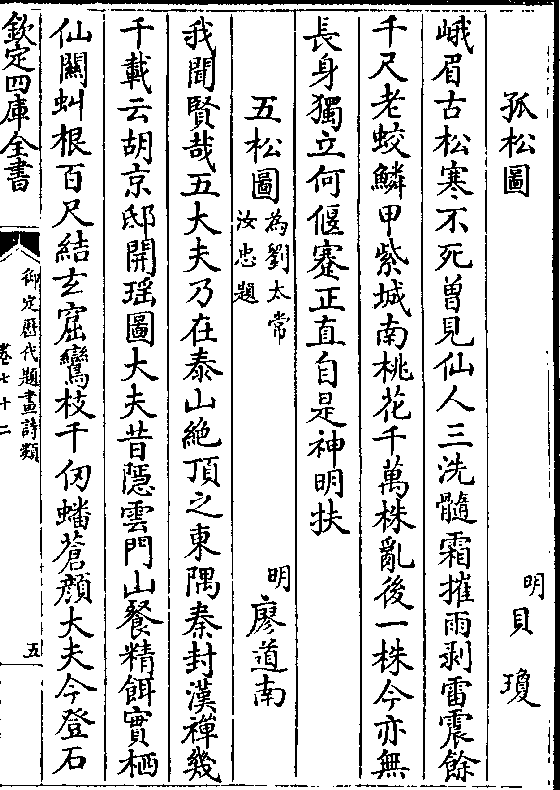 孤松圖 明貝瓊
峨眉古松寒不死曽見仙人三洗髓霜摧雨剥雷震餘
千尺老蛟鱗甲紫城南桃花千萬株亂後一株今亦無
長身獨立何偃蹇正直自是神明扶
五松圖 為劉太常汝忠題 明廖道南
我聞賢哉五大夫乃在泰山絶頂之東隅秦封漢禪幾
千載云胡京邸開瑶圖大夫昔隱雲門山餐精餌實栖
仙關虯根百尺結玄窟鸞枝千仞蟠蒼顔大夫今登石
欽定四庫全書
御定歴代題畫詩類
卷七十二
五